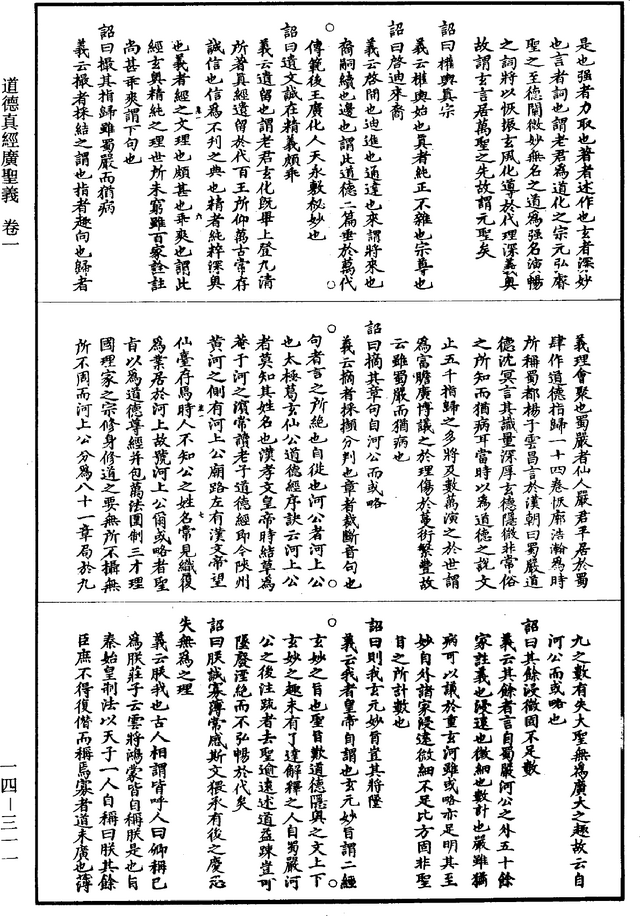 道德真經廣聖義　卷一
是也强者力取也著者述作也玄者深妙
也言者詞也謂老君爲道化之宗元弘齋
聖之至德闡微妙無名之道爲强名演暢
之詞將以恢振玄風化導於代理深義奧
故謂玄言居萬聖之先故謂元聖矣
詔曰權輿真宗
義云權輿始也真者純正不雜也宗尊也
詔曰啓迪來裔
義云啓開也迪進也通達也來謂將來也
裔嗣續也邊也謂此道德二篇垂於萬代
傳範後王廣化人天永敷秘妙也
詔曰遺文誠在精義頗乖
義云遺留也謂老君玄化既畢上登九清
所著真經遺留於代百王所仰萬古常存
誠信也信爲不刊之典也精者純粹深奧
也義者經之文理也頗甚也乖爽也謂此
經玄奧精純之理世所未窮雖百家詮註
尚甚乖爽謂下句也
詔曰撮其指歸雖蜀嚴而猶病
義云撮者採結之謂也指者趣向也歸者
義理會聚也蜀嚴者仙人嚴君平居於蜀
肆作道德指歸一十四卷恢廓浩瀚爲時
所稱蜀都楊子雲昌言於漢朝曰蜀嚴道
德沈冥言其識量深厚玄德隱微非常俗
之所知而猶病耳當時以爲道德之說文
止五千指歸之多將及數萬演之於世謂
爲富贍廣博議之於理傷於蔓衍繁豐故
云雖蜀嚴而猶病也
詔曰摘其章句自河公而或略
義云摘者採擷分判也章者裁斷音句也
句者言之所絶也自從也河公者河上公
也太極葛玄仙公道德經序訣云河上公
者莫知其姓名也漢孝文皇帝時結草爲
菴于河之濱常讀老子道德經即今陜州
黃河之側有河上公廟路左有漢文帝望
仙臺存焉時人不知公之姓名常見織履
爲業居於河上故號河上公爾或略者聖
旨以爲道德尊經并包萬法圍制三才理
國理家之宗修身修道之要無所不攝無
所不周而河上公分爲八十一章局於九
九之數有失大聖無爲廣大之趣故云自
河公而或略也
詔曰其餘浸微固不足數
義云其餘者言自蜀嚴河公之外五十餘
家註義也浸遠也微細也數計也嚴雖猶
病可以議於重玄河雖或略亦足明其至
妙自外諸家浸遠微細不足比方固非聖
旨之所計數也
詔曰則我玄元妙旨豈其將隆
義云我者皇帝自謂也玄元妙旨謂二經
玄妙之旨也聖旨歎道德隱奧之文上下
玄妙之趣未有了達解釋之人自蜀嚴河
公之後注疏者去聖逾遠述道益踈豈可
墜廢湮絶而不弘暢於代矣
詔曰朕誠寡薄常感斯文猥承有後之慶恐
失無爲之理
義云朕我也古人相謂皆呼人曰仰稱已
爲朕莊子云雲將鴻蒙皆自稱朕是也自
秦始皇制法以天子一人自稱曰朕其餘
臣庶不得復僭而稱焉寡者道未廣也薄
一四—三一一